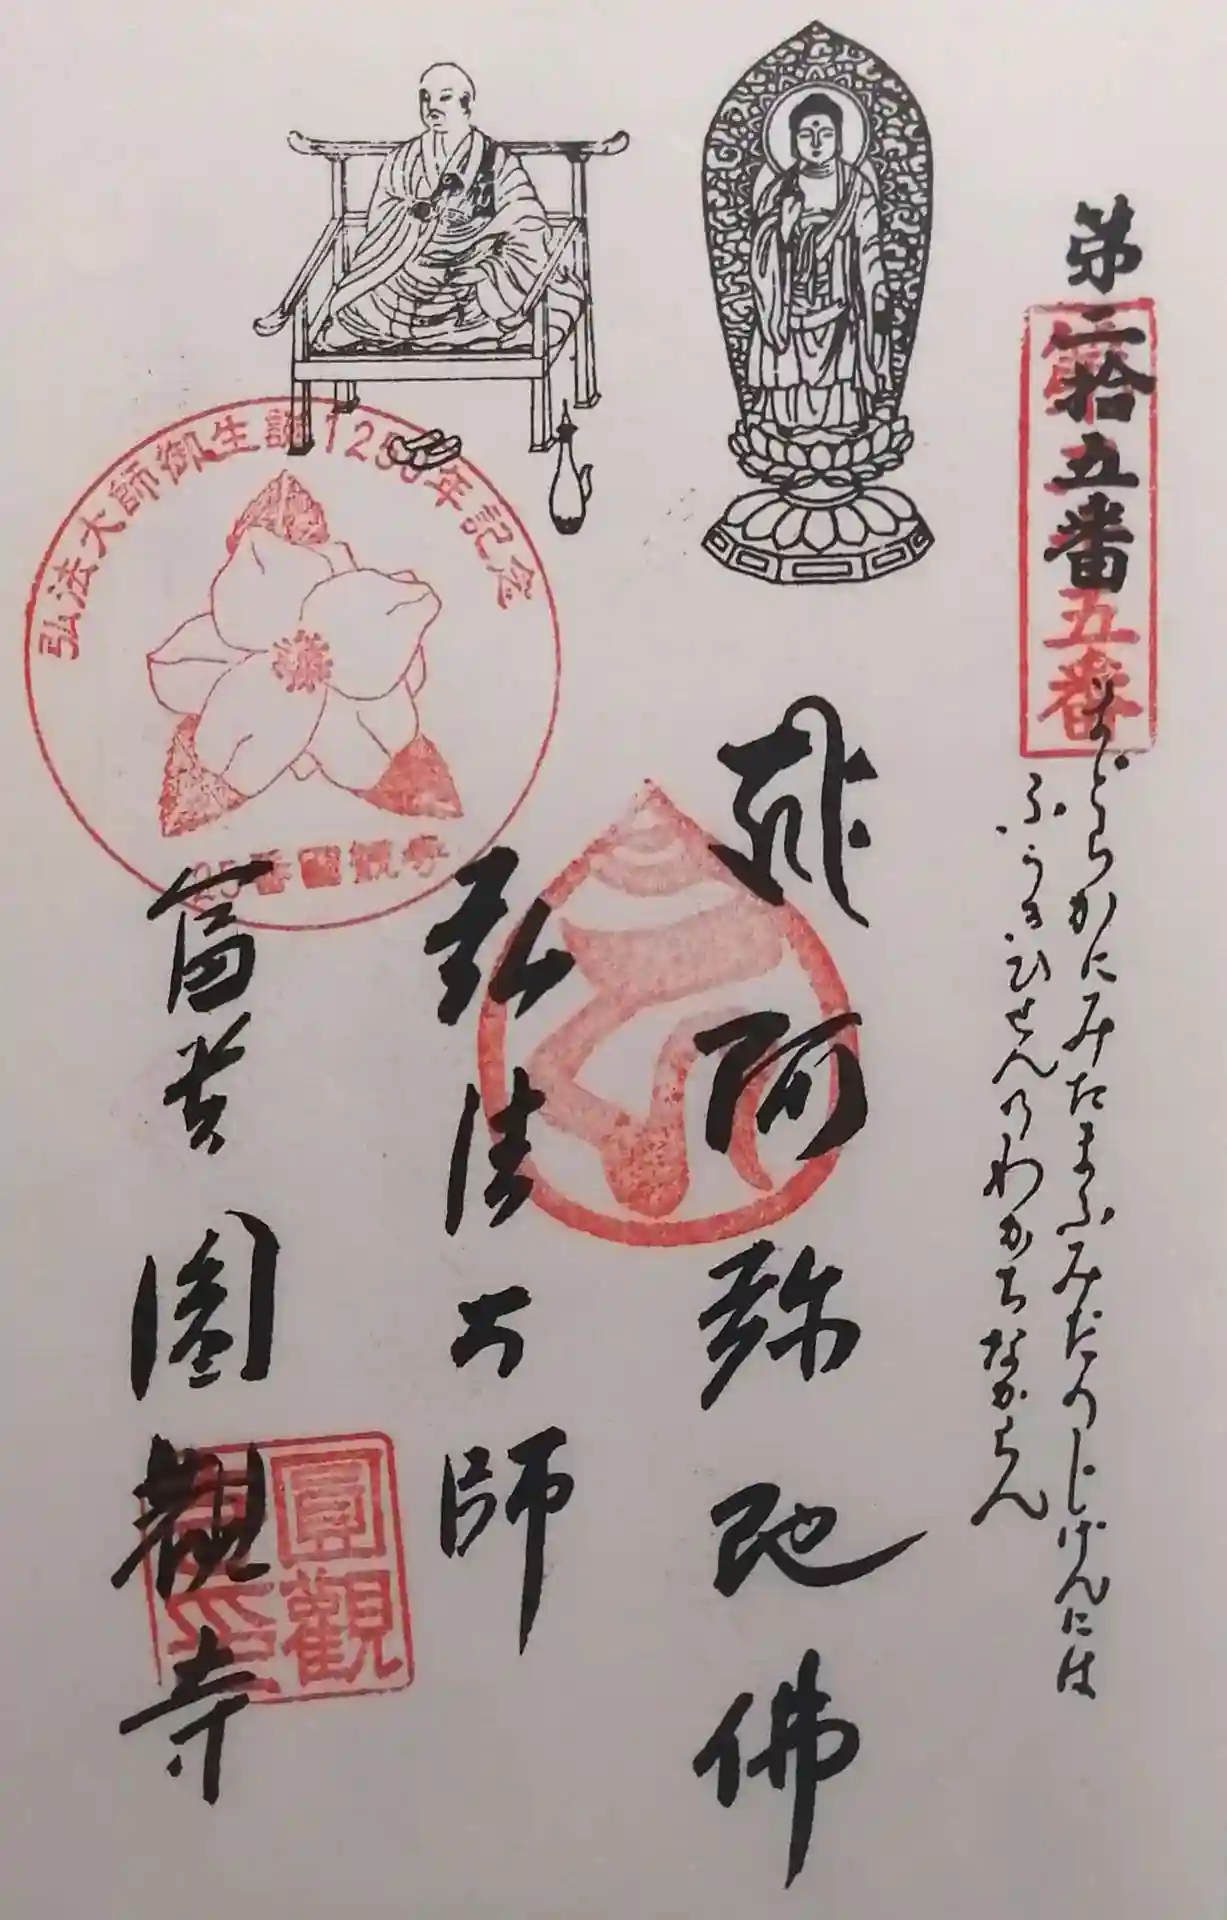 第二拾五番
五番
まどらかにみたまふみだのじげんには
ふうきひせんのわかちなからん
阿弥陀佛
弘法大師
富貴圓観寺
弘法大師御生誕1250年記念
25番圓観寺
圓觀